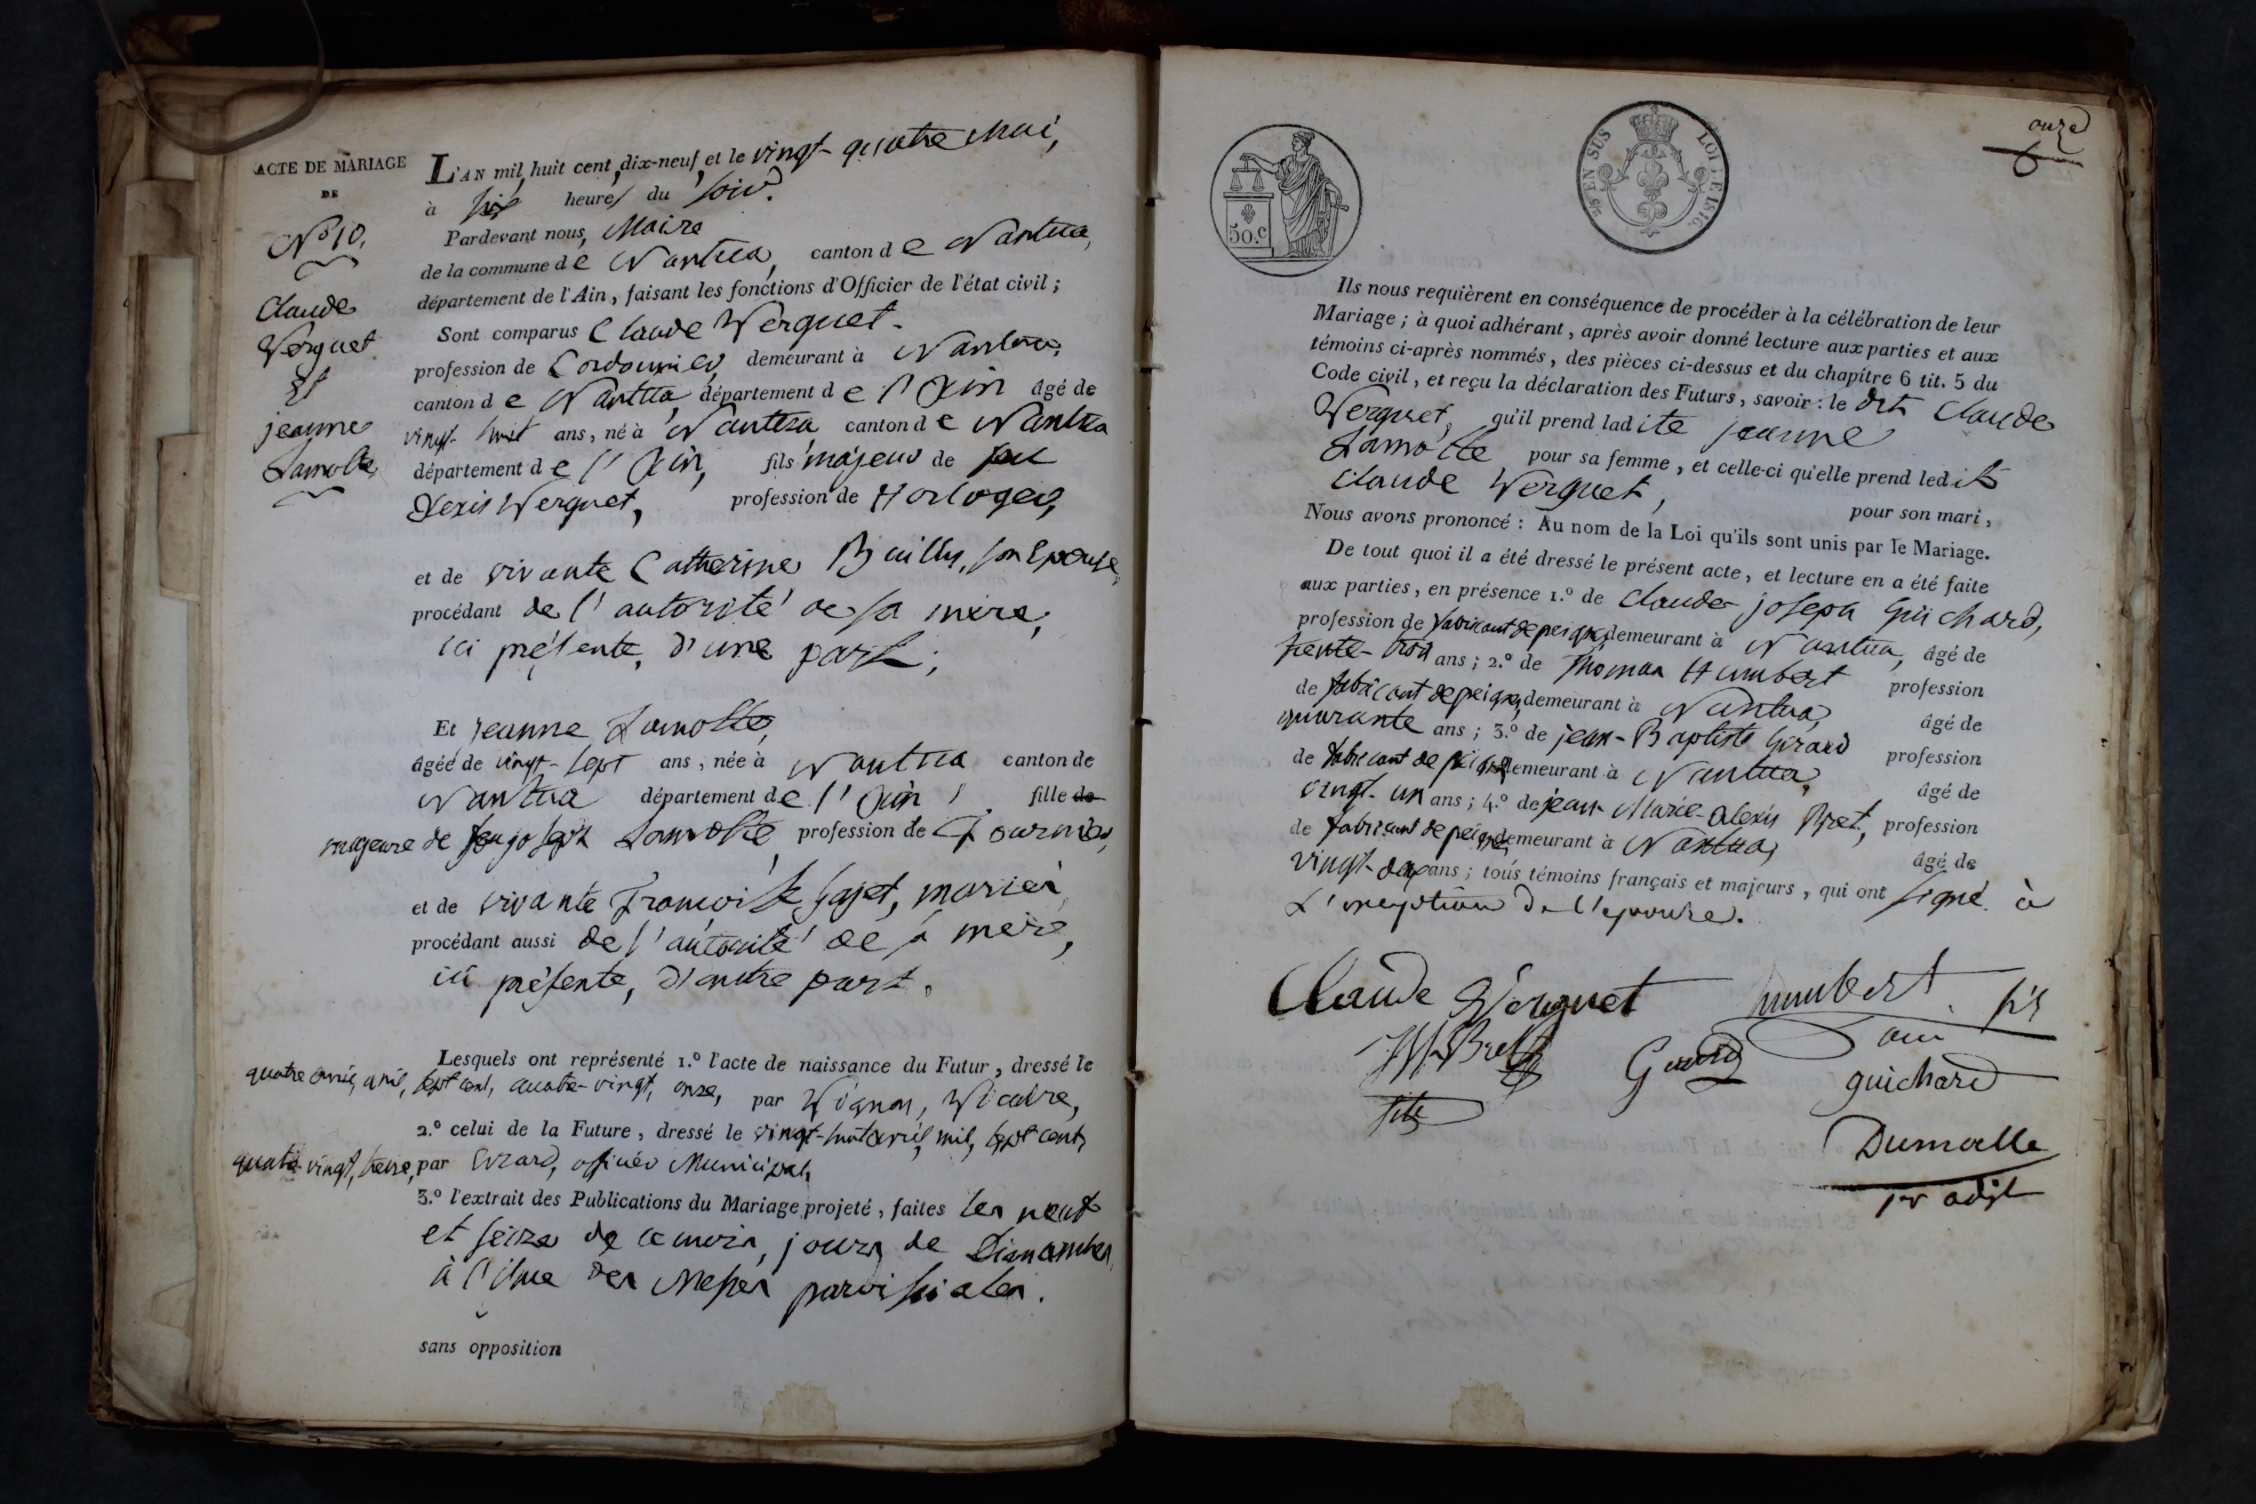 ACTE DE MARIAGE
DE
N.º 10.
Claude
Verguet
Et
jeanne
Lamotte
L'AN mil huit cent dix-neuf, et le vingt-quatre Mai,
à six heures du soir.
Pardevant nous, Maire
de la commune de Nantua, canton de Nantua,
département de l'Ain, faisant les fonctions d'Officier de l'état civil ;
Sont comparus Claude Verguet
profession de Cordonnier, demeurant à Nantua,
canton de Nantua, département de l'Ain âgé de
vingt-huit ans, né à Nantua canton de Nantua
département de l'Ain, fils majeur de feu
Alexis Verguet, profession de Horloger,
et de vivante Catherine Bailly, son Epouse,
procédant de l'autorité de sa mère,
ici présente, d'une part ;
Et jeanne Lamotte,
âgée de vingt-sept ans, née à Nantua canton de
Nantua département de l'Ain, fille de
majeure de feu joseph Lamotte, profession de
et de vivante Françoise Gajet, mariés,
procédant aussi de l'autorité de sa mère,
ici présente, d'autre part.
Lesquels ont représenté 1.º l'acte de naissance du Futur, dressé le
quatre avril, mil, sept cent, quatre-vingt, onze, par Vignon, Vicaire,
2.º celui de la Future, dressé le vingt-huit avril, mil, sept cent,
quatre-vingt, par officier Municipal,
3.º l'extrait des Publications du Mariage projeté, faites les neuf
et seize de ce mois, jours de Dimanches,
à l'issue des Messes paroissiales.
sans opposition
onze
50.C
25 EN SUS LOI DE 1816.
Ils nous requièrent en conséquence de procéder à la célébration de leur
Mariage ; à quoi adhérant, après avoir donné lecture aux parties et aux
témoins ci-après nommés, des pièces ci-dessus et du chapitre 6 tit. 5 du
Code civil, et reçu la déclaration des Futurs, savoir : le dit Claude
Verguet, qu'il prend ladite jeanne
Lamotte pour sa femme, et celle-ci qu'elle prend ledit
Claude Verguet, pour son mari,
Nous avons prononcé : Au nom de la Loi qu'ils sont unis par le Mariage.
De tout quoi il a été dressé le présent acte, et lecture en a été faite
aux parties, en présence 1.º de Claude joseph Guichard,
profession de fabricant de peignes demeurant à Nantua, âgé de
trente-trois ans ; 2.º de Thomas Humbert profession
de fabricant de peignes, demeurant à Nantua, âgé de
quarante ans ; 3.º de jean-Baptiste Girard profession
de fabricant de peignes demeurant à Nantua, âgé de
vingt-un ans ; 4.º de jean-Marie-Alexis Bret, profession
de fabricant de peignes, demeurant à Nantua, âgé de
vingt- ans ; tous témoins français et majeurs, qui ont signé à
L'exception de l'epouse.
Claude Verguet
humbert
Bret
fils
Girard
guichard
Dumolle
1er adjt